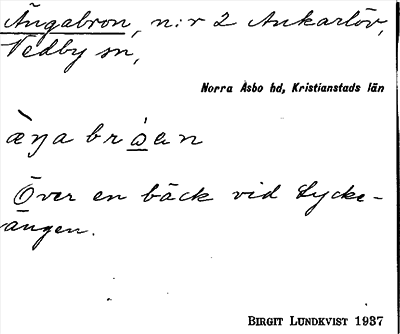 Ängabron, n:r 2 Ankarlöv,
Vedby sn,
Norra Åsbo hd, Kristianstads län
Över en bäck vid Lycke-
ängen.
BIRGIT LUNDKVIST 1937